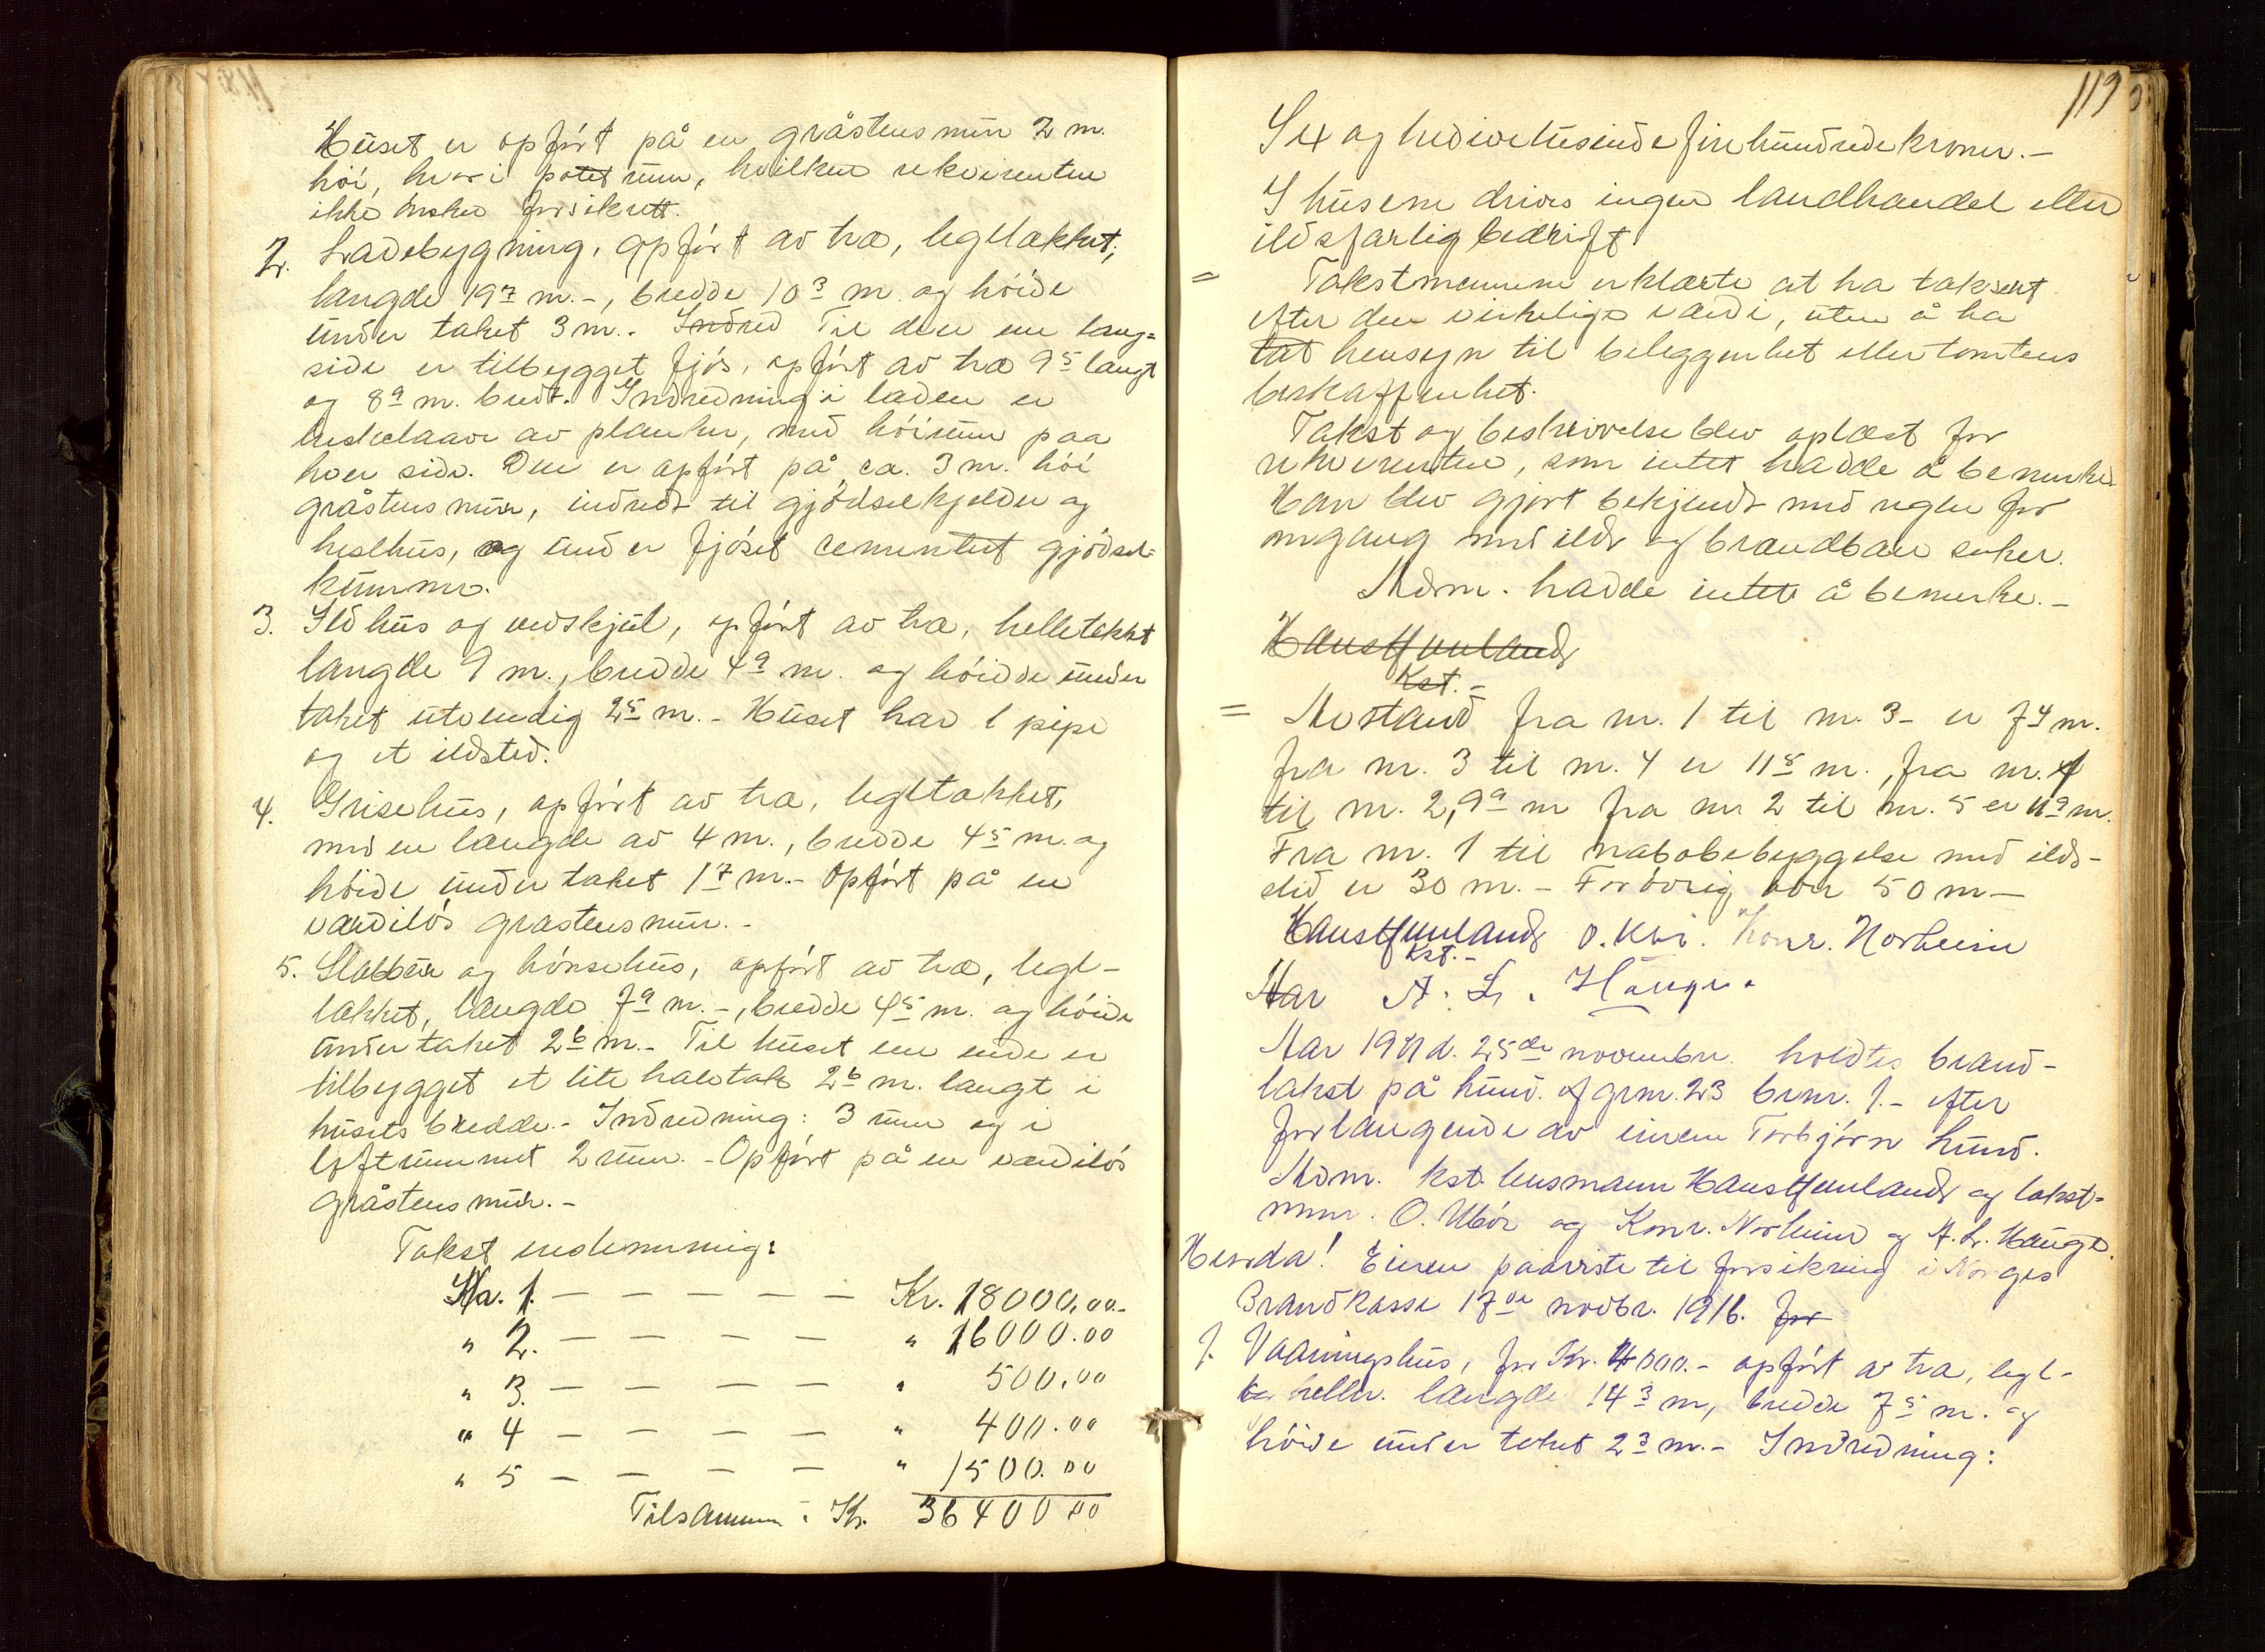 Huset er opført på en gråstensmur 2 m.
høi, hvori potetrum, hvilken rekvirenten
ikke ønsker forsikrett.
2. Ladebygning, opført av træ, tegltækket,
længde 19⁷ m.-, bredde 10³ m. og høide
under taket 3 m.- Indred Til den ene lang=
side er tilbygget fjøs, opført av træ 9⁵ langt
og 8⁹ m. bredt. Indredning i laden er
treskelaave av planker, med høirum paa
hver side. Den er opført på ca. 3 m. høi
gråstensmur, indredt til gjødselkjelder og
hesthus, og under fjøset cementert gjødsel=
kumme.
3. Ildhus og vedskjul, opført av træ, helletækket
længde 9 m., bredde 4⁹ m. og høidde under
taket utvendig 2⁵ m.- Huset har 1 pipe
og et ildsted.
4. Grisehus, opført av træ, tegltækket,
med en længde av 4 m., bredde 4⁵ m. og
høide under taket 1⁷ m.- Opført på en
værdiløs gråstensmur.-
5. Stabbur og hønsehus, opført av træ, tegl-
tækket, længde 7⁹ m.-, bredde 4⁵ m. og høide
under taket 2⁶ m.- Til huset ene ende er
tilbygget et lite halvtak 2⁶ m. langt i
husets bredde.- Indredning: 3 rum og i
loftrummet 2 rum.- Opført på en værdiløs
gråstensmur.-
Takst
No. 1. — — — — — Kr. 18000,00.-
" 2. — — — — " 16000.00
" 3. — — — — " 500,00
" 4 — — — — " 400.00
" 5 — — — — " 1500.00
Tilsammen: Kr. 36400 00
119
Sex og tredivetusindefirehundredekroner.-
I husene drives ingen landhandel eller
ildsfarlig bedrift.
= Takstmennene erklærte at ha taksert
efter den virkelige værdi, uten å ha
tat hensyn til beleggenhet eller tomtens
beskaffenhet.
Takst og beskrivelse blev oplæst for
rekvirenten, som intet hadde å bemerke.
Han blev gjort bekjendt med reglene for
omgang med ild og brandbare saker.
Mdm. hadde intet å bemerke.-
Hans Hunlands
Kst.-
= Avstand fra nr. 1 til nr. 3- er 7⁴ m.
fra nr. 3 til nr. 4 er 11⁸ m., fra nr. 4
til nr. 2, 9⁹ m fra nr 2 til nr. 5 er 11⁹ m.
Fra nr. 1 til nabobebyggelse med ild-
sted er 30 m.- Forøvrig over 50 m—
Hans Hunlands O. Konr. Norheim
Kst.-
Aar A. L. Hauge.
Aar 19 d. 25de november. holdtes brand-
takst på hund. af grnr. 23 brnr. 1.- efter
forlangende av eieren Torbjørn Hund.
Mdm. kst. lensmann Hans Hunlands og takst=
menn. O. og Konr. Norheim og A. L. Hauge.
Eieren paaviste til forsikring i Norges
Brandkasse 17de novbr. 1916. for
1. Vaaningshus, for Kr. 4000.- opført av træ, tegl-
tæ heller. længde 14³ m, bredde 7⁵ m. og
høide under taket 2³ m.- Indredning: